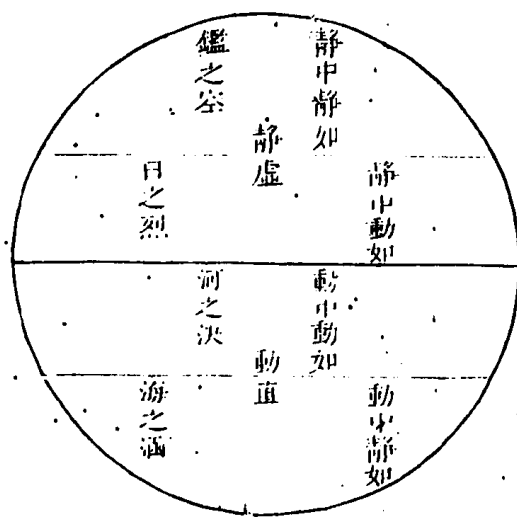 靜中靜如
鑑之空
靜虛
靜中動如
日之烈
動中動如
河之決
動直
動中靜如
海之涵